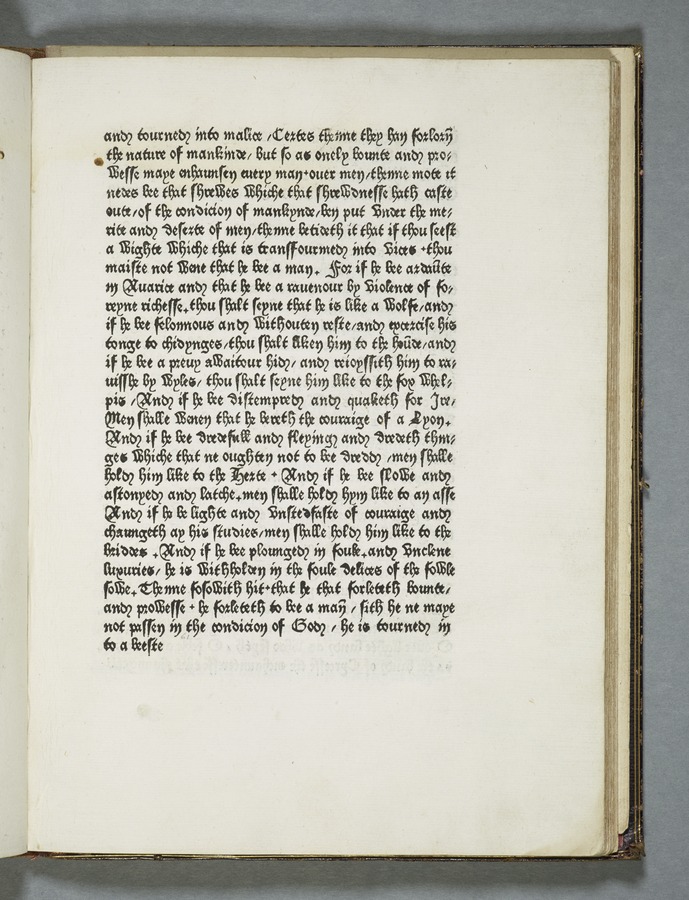 and tourned into malice /Certes thenne they han forlorn̄
the nature of mankinde/ but so as onely bounte and pro/
wesse maye enhaunsen euery man•ouer men/thenne mote it
nedes bee that shrewes whiche that shrewdnesse hath caste
oute/of the condicion of mankynde/ben put vnder the me/
rite and deserte of men/thenne betideth it that if thou seest
a wighte whiche that is transffourmed into vices •thou
maiste not wene that he bee a man. For if he bee ardaūte
in Auarice and that he bee a rauenour by violence of fo/
reyne richesse.thou shalt seyne that he is like a wolfe/and
if he bee felonnous and withouten reste/and excercise his
tonge to chidynges/thou shalt liken him to the hoūde/and
if he bee a preuy awaitour hid/ and reioyssith him to ra/
uisshe by wyles/ thou shalt seyne him like to the fox whel/
pis /And if he bee distempred and quaketh for Ire/
Men shalle wenen that he bereth the couraige of a Lyon.
And if he bee dredefull and fleying and dredeth thin/
ges whiche that ne oughten not to bee dredd /men shalle
hold him like to the Herte • And if he bee slowe and
astonyed and latche.men shalle hold hym like to an asse
And if he be lighte and vnstedfaste of couraige and
chaungeth ay his studies/men shalle hold him like to the
briddes .And if he bee plounged in foule.and vnclene
luxuries/ he is withholden in the foule delices of the fowle
sowe.Thenne fosowith hit•that he that forleteth bounte/
and prowesse • he forleteth to bee a man̄ / sith he ne maye
not passen in the condicion of God / he is tourned in
to a beeste